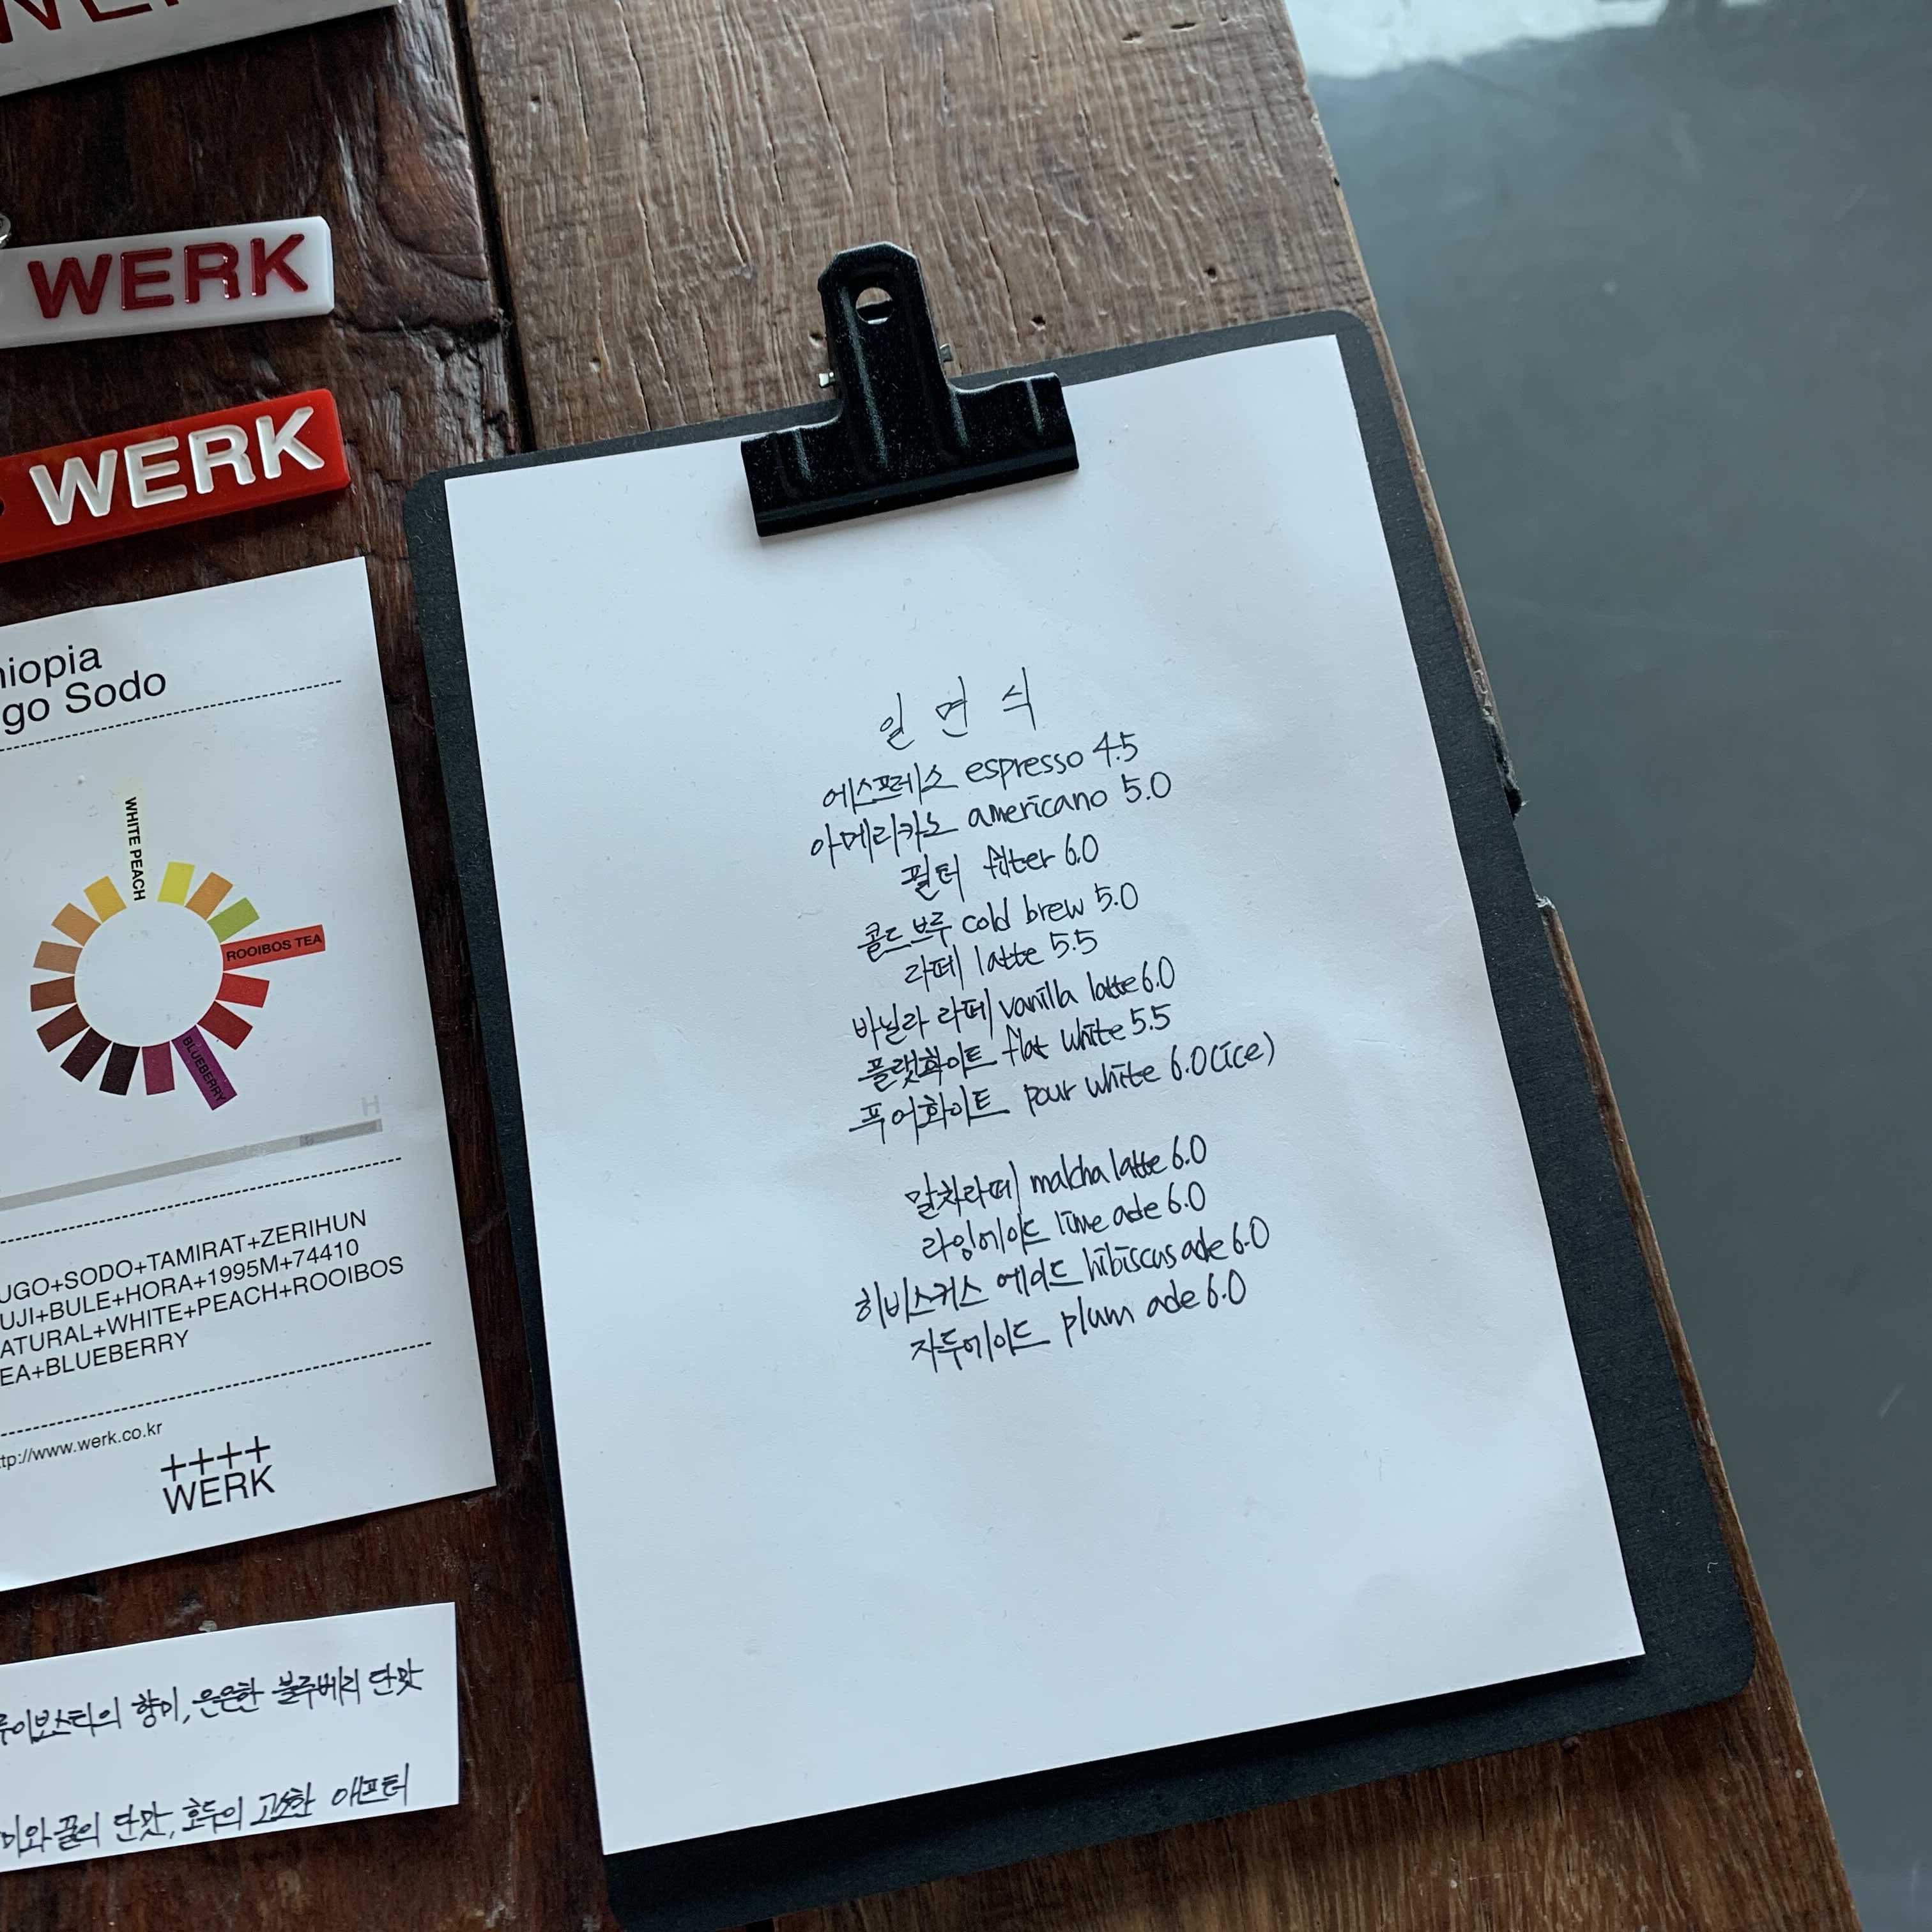 WERK
WERK
hiopia
go Sodo
WHITE PEACH
ROOIBOS TEA
BLUEBERRY
H
UGO+SODO+TAMIRAT+ZERIHUN
UJI+BULE+HORA+1995M+74410
ATURAL+WHITE+PEACH+ROOIBOS
EA+BLUEBERRY
tp://www.werk.co.kr
++++
WERK
루이보스티의 향미, 은은한 블루베리 단맛
미와 꿀의 단맛, 호두의 고소한 애프터
일면식
에스프레소 espresso 4.5
아메리카노 americano 5.0
필터 filter 6.0
콜드브루 cold brew 5.0
라떼 latte 5.5
바닐라 라떼 vanilla latte 6.0
플랫화이트 flat white 5.5
푸어화이트 pour white 6.0 (ice)
말차라떼 malcha latte 6.0
라임에이드 lime ade 6.0
히비스커스 에이드 hibiscus ade 6.0
자두에이드 plum ade 6.0